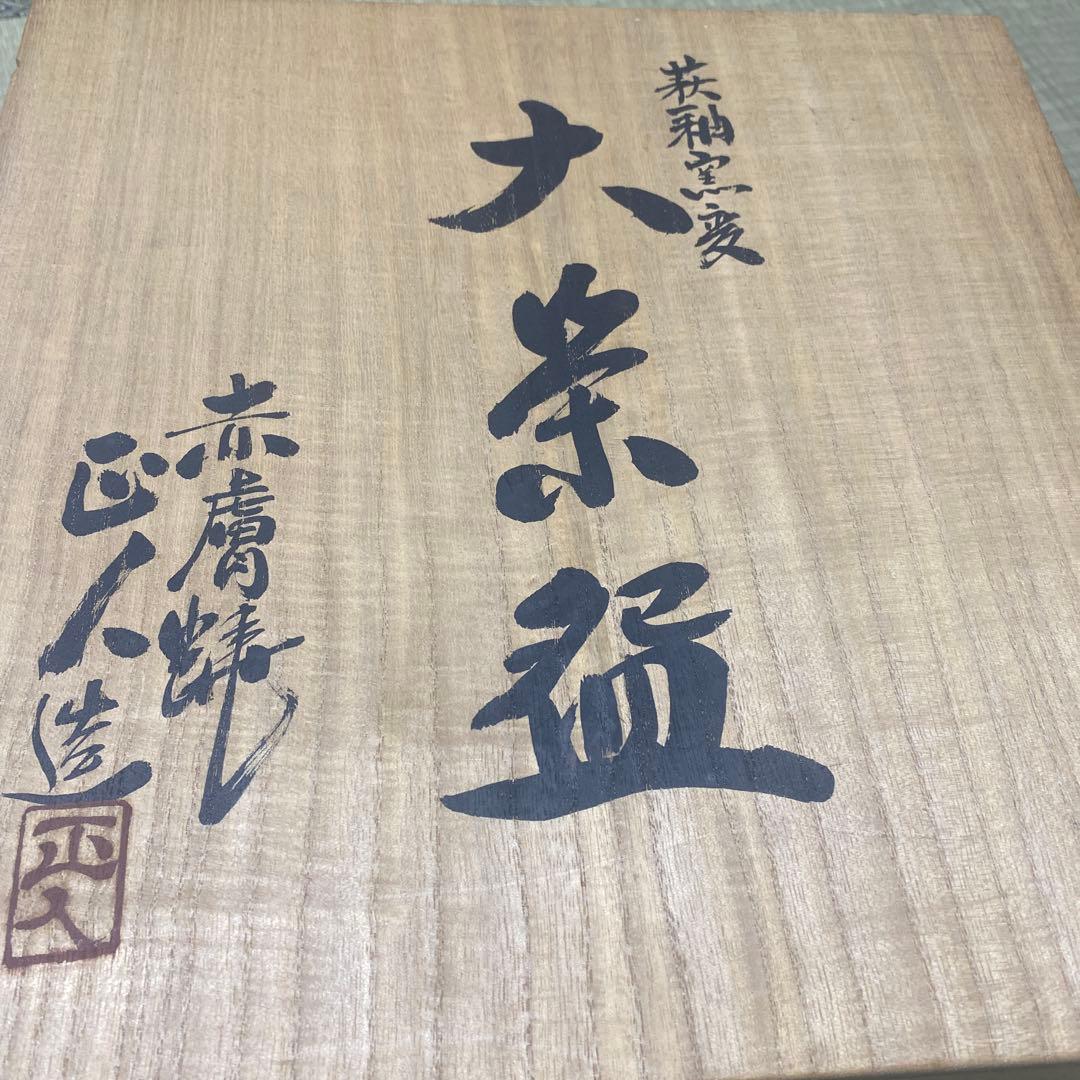 萩釉窯変
大茶盌
赤膚焼
正人造
正人